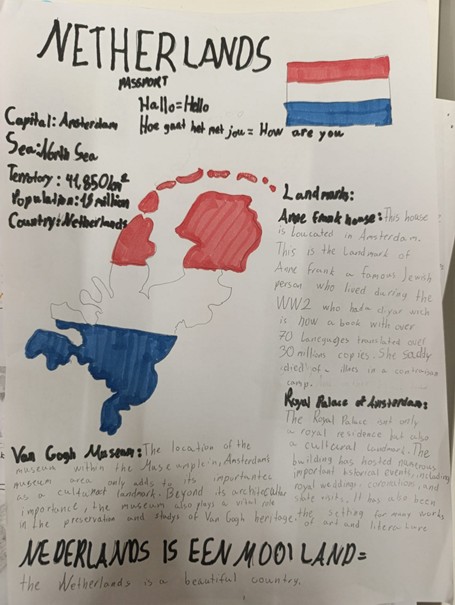 NETHERLANDS
PASSPORT
Hallo=Hello
Hoe gaat het met jou = How are you
Capital: Amsterdam
Sea: North Sea
Territory: 41,850 km²
Population: 18 million
Country: Netherlands
Landmarks:
Anne Frank house: This house
is loucated in Amsterdam.
This is the Landmark of
Anne frank a famous Jewish
person who lived during the
WW2 who had a diyar wich
is now a book with over
70 Languages translated over
30 million copies. She sadly
(died) of illnes in a
camp.
Royal Palace of Amsterdam:
The Royal Palace isnt only
a royal residence but also
a cultural landmark. The
building has hosted numerous
important historical events, including
royal weddings, coronation, and
state visits. It has also been
the setting for many works
of art and literature
Van Gogh Museum: The location of the
museum within the Amsterdam
museum area only adds to its
as a cultural landmark. Beyond its
importance, the museum also plays a vital role
in the preservation and studys of Van Gogh heritage.
NEDERLANDS IS EEN MOOI LAND=
the Netherlands is a beautiful country.